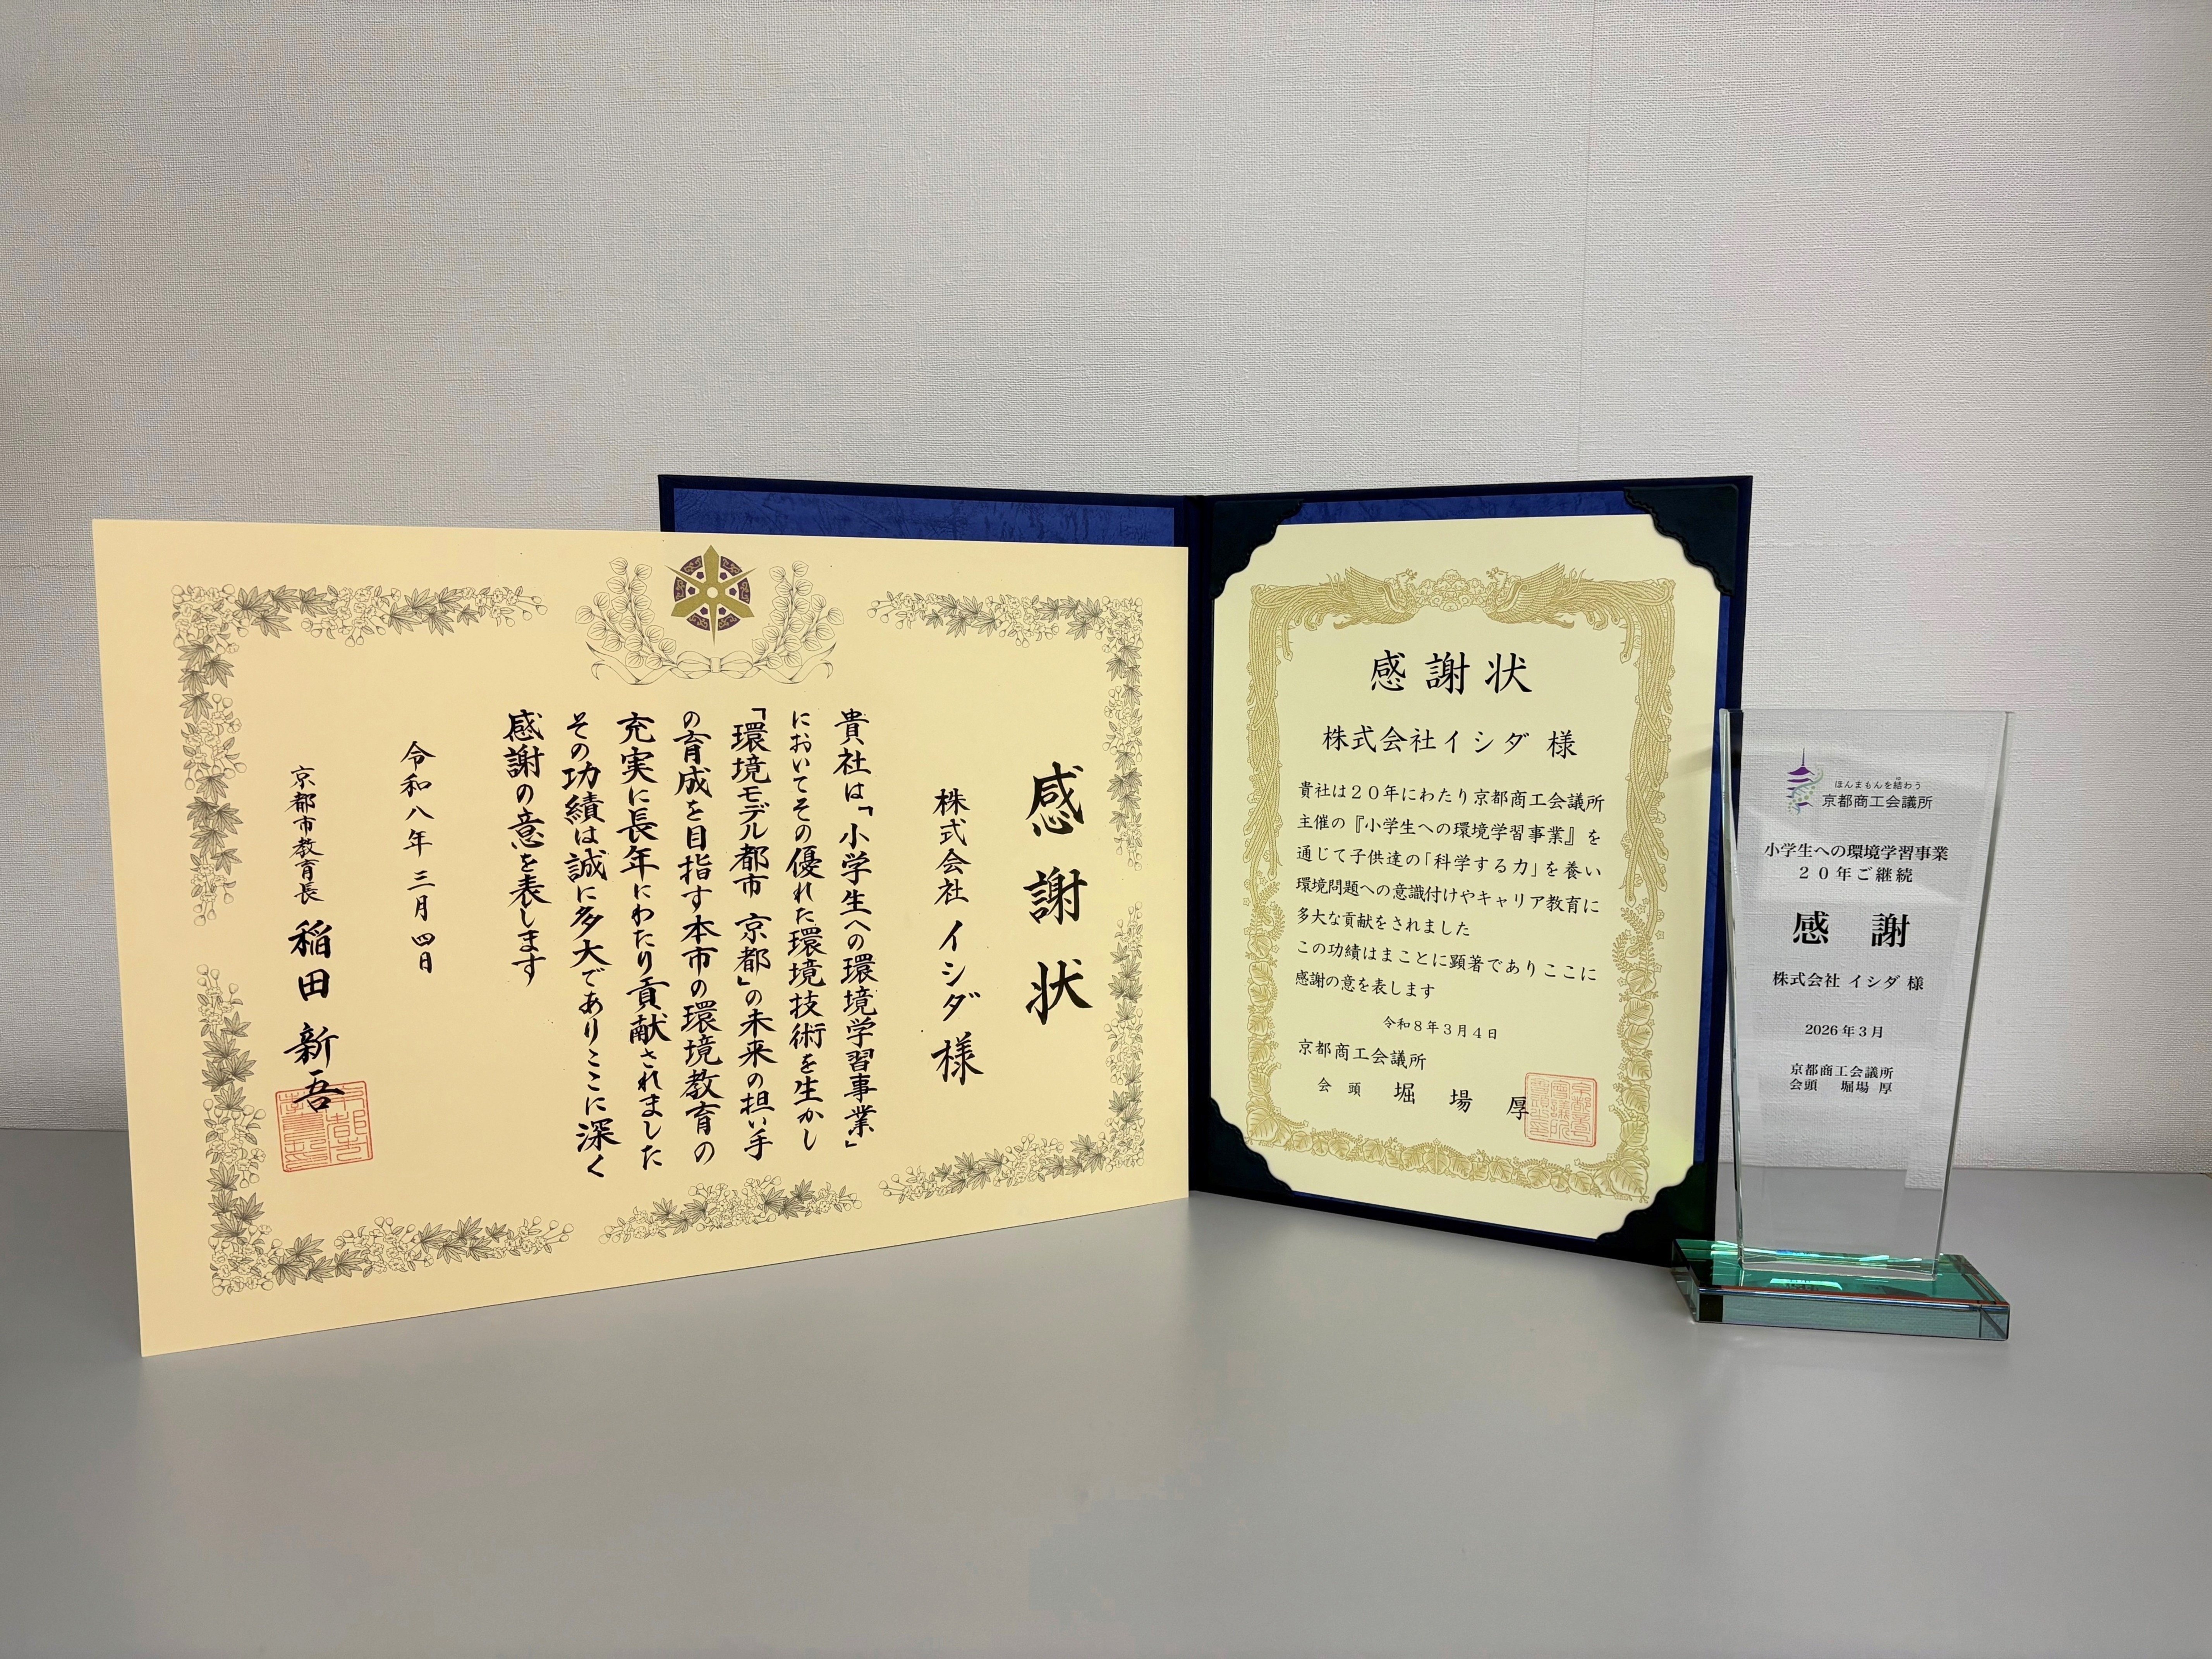 感謝状
株式会社 イシダ 様
貴社は「小学生への環境学習事業」
においてその優れた環境技術を生かし
「環境モデル都市 京都」の未来の担い手
の育成を目指す本市の環境教育の
充実に長年にわたり貢献されました
その功績は誠に多大でありここに深く
感謝の意を表します
令和八年三月四日
京都市教育長 稲田 新吾
感謝状
株式会社イシダ 様
貴社は20年にわたり京都商工会議所
主催の『小学生への環境学習事業』を
通じて子供達の「科学する力」を養い
環境問題への意識付けやキャリア教育に
多大な貢献をされました
この功績はまことに顕著でありここに
感謝の意を表します
令和8年3月4日
京都商工会議所
会頭 堀場 厚
ほんまもんを結わう
ゆ
京都商工会議所
小学生への環境学習事業
20年ご継続
感 謝
株式会社 イシダ 様
2026年3月
京都商工会議所
会頭 堀場 厚